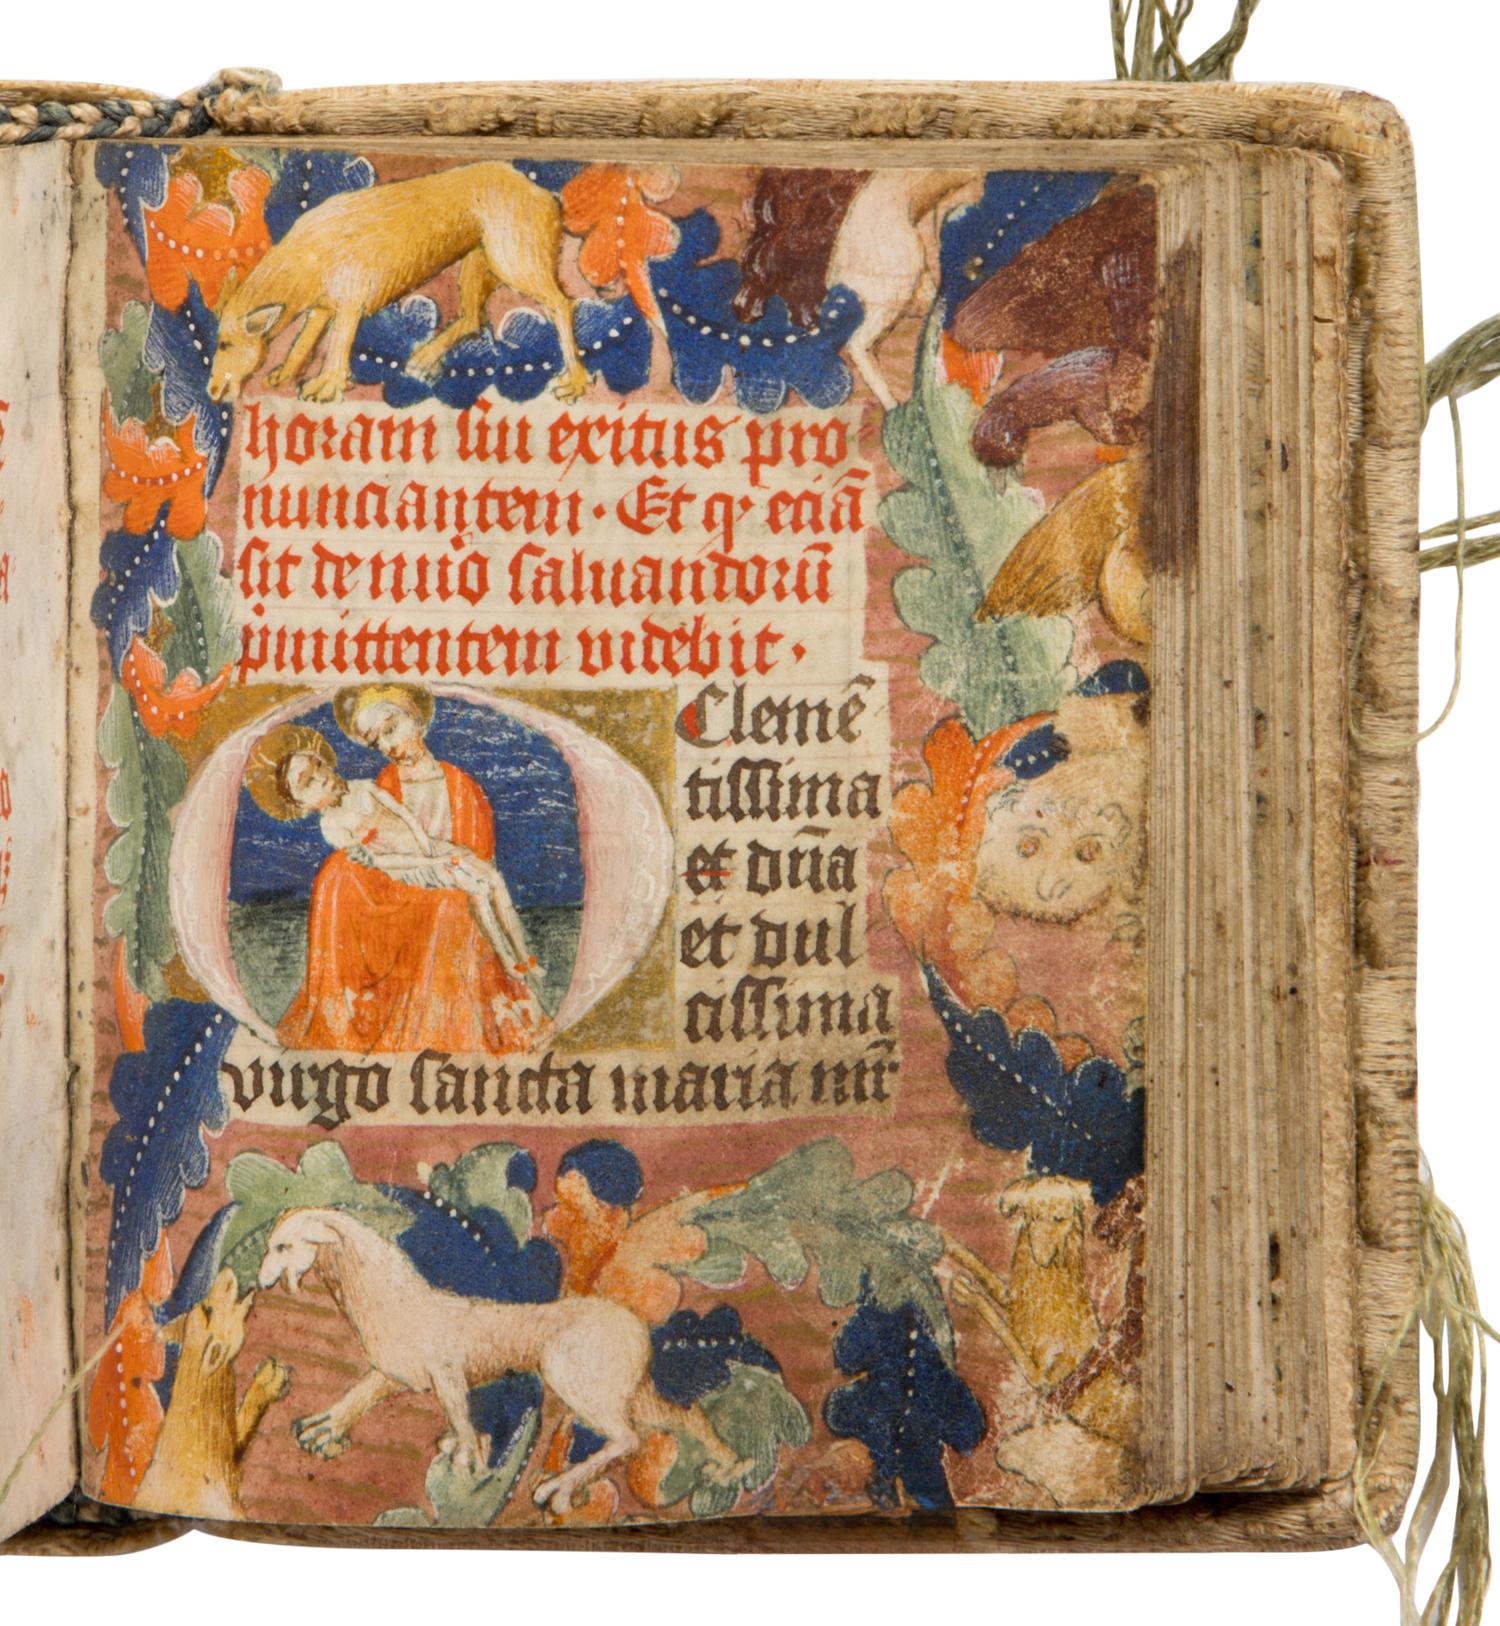 horam sui exitus pro-
nunciantem. Et qꝫ eciā
sit de nūo saluandorū
p̄mittentem videbit.
O Clemē
tissima
et dn̄a
et dul
cissima
virgo sancta maria mr̄